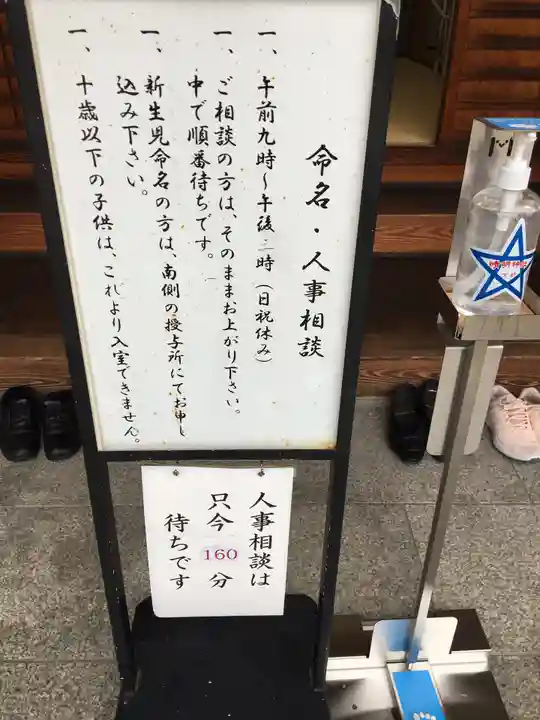 命名・人事相談
一、午前九時～午後三時（日祝休み）
一、ご相談の方は、そのままお上がり下さい。
中で順番待ちです。
一、新生児命名の方は、南側の授与所にてお申し
込み下さい。
一、十歳以下の子供は、これより入室できません。
人事相談は
只今160分
待ちです
晴明神社